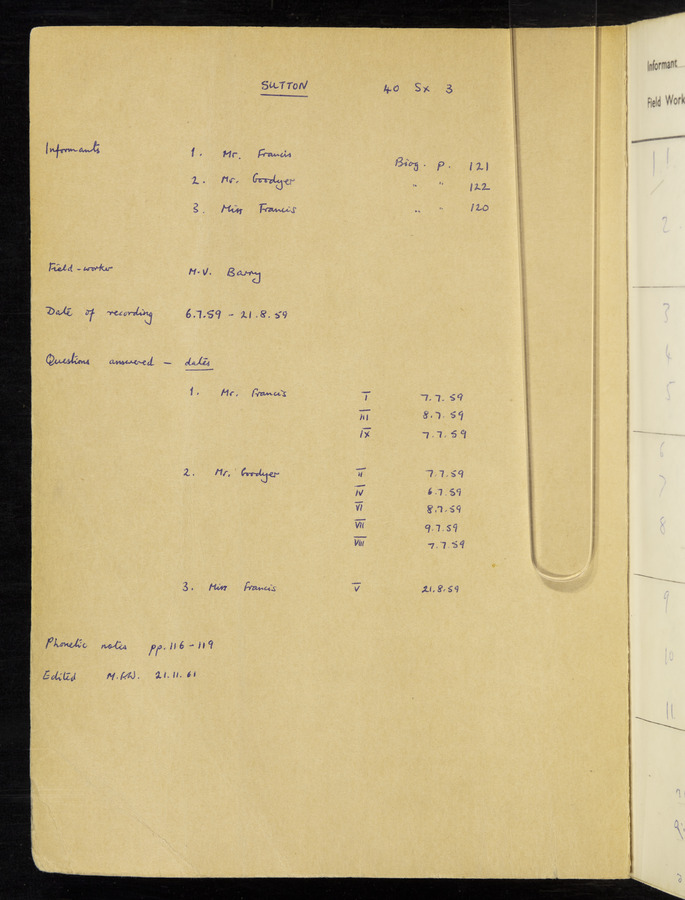 SUTTON 40 Sx 3
Informants 1. Mr. Francis Biog. p. 121
2. Mr. Goodyer " " 122
3. Miss Francis " " 120
Field-worker M.V. Barry
Date of recording 6.7.59 - 21.8.59
Questions answered - dates
1. Mr. Francis I 7.7.59
III 8.7.59
IX 7.7.59
2. Mr. Goodyer II 7.7.59
IV 6.7.59
VI 8.7.59
VII 9.7.59
VIII 7.7.59
3. Miss Francis V 21.8.59
Phonetic notes pp. 116 - 119
Edited 21.11.61
Informant
Field Work
2.
3
4
5
6
7
8
9
10
11.